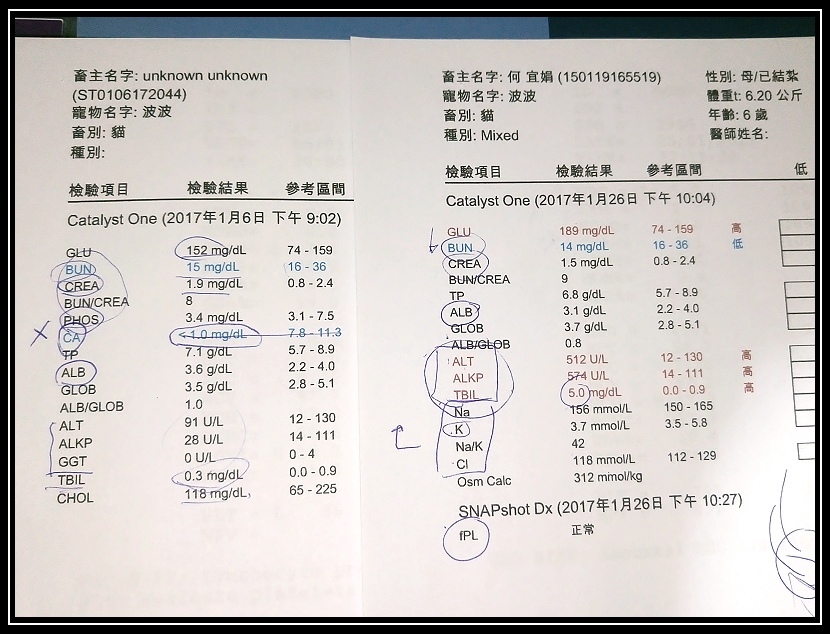 畜主名字: unknown unknown
(ST0106172044)
寵物名字: 波波
畜別: 貓
種別:
檢驗項目 檢驗結果 參考區間
Catalyst One (2017年1月6日 下午 9:02)
GLU 152 mg/dL 74 - 159
BUN 15 mg/dL 16 - 36
CREA 1.9 mg/dL 0.8 - 2.4
BUN/CREA 8
PHOS 3.4 mg/dL 3.1 - 7.5
CA < 1.0 mg/dL 7.8 - 11.3
TP 7.1 g/dL 5.7 - 8.9
ALB 3.6 g/dL 2.2 - 4.0
GLOB 3.5 g/dL 2.8 - 5.1
ALB/GLOB 1.0
ALT 91 U/L 12 - 130
ALKP 28 U/L 14 - 111
GGT 0 U/L 0 - 4
TBIL 0.3 mg/dL 0.0 - 0.9
CHOL 118 mg/dL 65 - 225
畜主名字: 何 宜娟 (150119165519) 性別: 母/已結紮
寵物名字: 波波 體重t: 6.20 公斤
畜別: 貓 年齡: 6 歲
種別: Mixed 醫師姓名:
檢驗項目 檢驗結果 參考區間 低
Catalyst One (2017年1月26日 下午 10:04)
GLU 189 mg/dL 74 - 159 高
BUN 14 mg/dL 16 - 36 低
CREA 1.5 mg/dL 0.8 - 2.4
BUN/CREA 9
TP 6.8 g/dL 5.7 - 8.9
ALB 3.1 g/dL 2.2 - 4.0
GLOB 3.7 g/dL 2.8 - 5.1
ALB/GLOB 0.8
ALT 512 U/L 12 - 130 高
ALKP 574 U/L 14 - 111 高
TBIL 5.0 mg/dL 0.0 - 0.9 高
Na 156 mmol/L 150 - 165
K 3.7 mmol/L 3.5 - 5.8
Na/K 42
Cl 118 mmol/L 112 - 129
Osm Calc 312 mmol/kg
SNAPshot Dx (2017年1月26日 下午 10:27)
fPL 正常